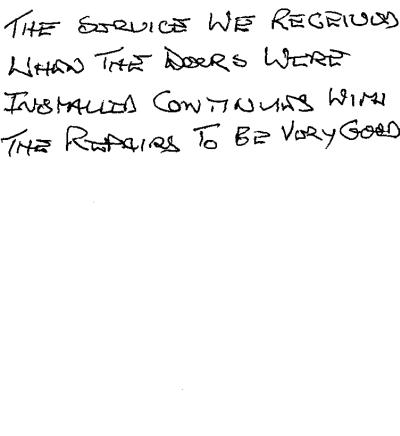 THE SERVICE WE RECEIVED
WHEN THE DOORS WERE
INSTALLED CONTINUES WITH
THE REPAIRS TO BE VERY GOOD